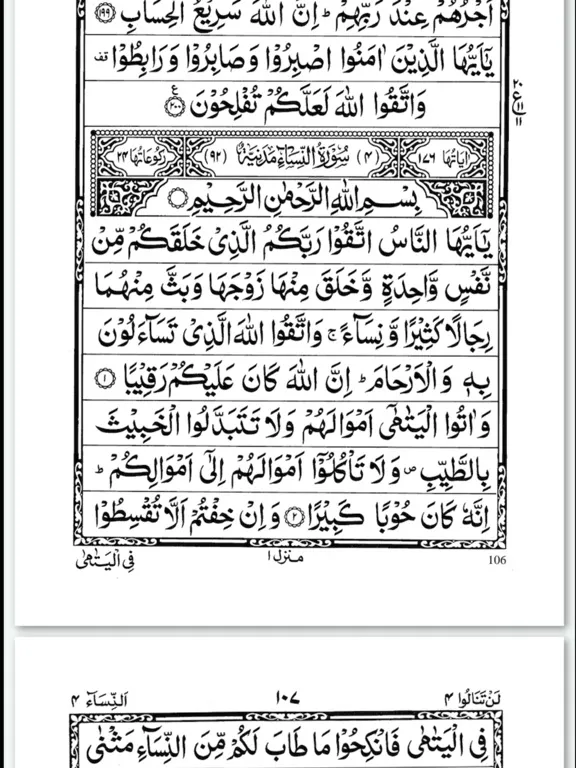 اَجْرُهُمْ عِنْدَ رَبِّهِمْ ؕ اِنَّ اللّٰهَ سَرِيْعُ الْحِسَابِ ﴿۱۹۹﴾
يٰۤاَيُّهَا الَّذِيْنَ اٰمَنُوا اصْبِرُوْا وَصَابِرُوْا وَرَابِطُوْا قف
وَاتَّقُوا اللّٰهَ لَعَلَّكُمْ تُفْلِحُوْنَ ﴿۲۰۰﴾ ع
۲۰
ع
۱۱
۱۱
اٰيَاتُهَا ۱۷۶ (۴) سُوْرَةُ النِّسَآءِ مَدَنِيَّةٌ (۹۲) رُكُوْعَاتُهَا ۲۴
بِسْمِ اللّٰهِ الرَّحْمٰنِ الرَّحِيْمِ
يٰۤاَيُّهَا النَّاسُ اتَّقُوْا رَبَّكُمُ الَّذِيْ خَلَقَكُمْ مِّنْ
نَّفْسٍ وَّاحِدَةٍ وَّخَلَقَ مِنْهَا زَوْجَهَا وَبَثَّ مِنْهُمَا
رِجَالًا كَثِيْرًا وَّنِسَآءً ۚ وَاتَّقُوا اللّٰهَ الَّذِيْ تَسَآءَلُوْنَ
بِهٖ وَالْاَرْحَامَ ؕ اِنَّ اللّٰهَ كَانَ عَلَيْكُمْ رَقِيْبًا ﴿۱﴾
وَاٰتُوا الْيَتٰمٰۤى اَمْوَالَهُمْ وَلَا تَتَبَدَّلُوا الْخَبِيْثَ
بِالطَّيِّبِ ۪ وَلَا تَاْكُلُوْۤا اَمْوَالَهُمْ اِلٰۤى اَمْوَالِكُمْ ؕ
اِنَّهٗ كَانَ حُوْبًا كَبِيْرًا ﴿۲﴾ وَاِنْ خِفْتُمْ اَلَّا تُقْسِطُوْا
106 منزل ۱ فِي الْيَتٰمٰى
لَنْ تَنَالُوا ۴ ۱۰۷ اَلنِّسَآء ۴
فِي الْيَتٰمٰى فَانْكِحُوْا مَا طَابَ لَكُمْ مِّنَ النِّسَآءِ مَثْنٰى